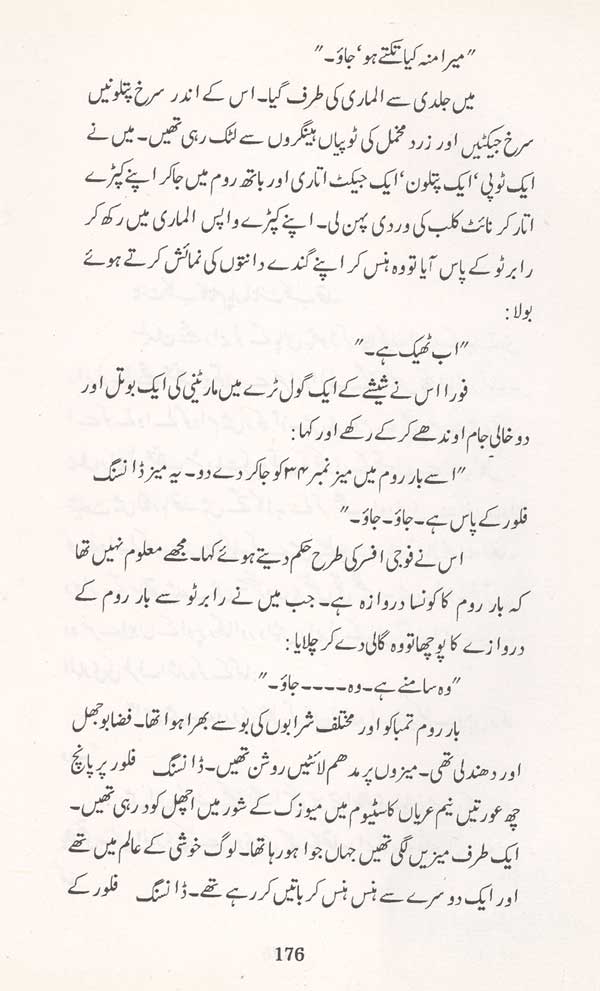 "میرا منہ کیا تکتے ہو' جاؤ۔"
میں جلدی سے الماری کی طرف گیا۔ اس کے اندر سرخ پتلونیں
سرخ جیکٹیں اور زرد مخمل کی ٹوپیاں ہینگروں سے لٹک رہی تھیں۔ میں نے
ایک ٹوپی' ایک پتلون' ایک جیکٹ اتاری اور باتھ روم میں جا کر اپنے کپڑے
اتار کر نائٹ کلب کی وردی پہن لی۔ اپنے کپڑے واپس الماری میں رکھ کر
رابرٹو کے پاس آیا تو وہ ہنس کر اپنے گندے دانتوں کی نمائش کرتے ہوئے
بولا:
"اب ٹھیک ہے۔"
فورا اس نے شیشے کے ایک گول ٹرے میں مارٹینی کی ایک بوتل اور
دو خالی جام اوندھے کر کے رکھے اور کہا:
"اسے بار روم میں میز نمبر ۳۴ کو جا کر دے دو۔ یہ میز ڈانسنگ
فلور کے پاس ہے۔ جاؤ۔ جاؤ۔"
اس نے فوجی افسر کی طرح حکم دیتے ہوئے کہا۔ مجھے معلوم نہیں تھا
کہ بار روم کا کونسا دروازہ ہے۔ جب میں نے رابرٹو سے بار روم کے
دروازے کا پوچھا تو وہ گالی دے کر چلایا:
"وہ سامنے ہے۔ وہ۔۔۔۔ جاؤ۔"
بار روم تمباکو اور مختلف شرابوں کی بو سے بھرا ہوا تھا۔ فضا بوجھل
اور دھندلی تھی۔ میزوں پر مدھم لائٹیں روشن تھیں۔ ڈانسنگ فلور پر پانچ
چھ عورتیں نیم عریاں کاسٹیوم میں میوزک کے شور میں اچھل کود رہی تھیں۔
ایک طرف میزیں لگی تھیں جہاں جوا ہو رہا تھا۔ لوگ خوشی کے عالم میں تھے
اور ایک دوسرے سے ہنس ہنس کر باتیں کر رہے تھے۔ ڈانسنگ فلور کے
176